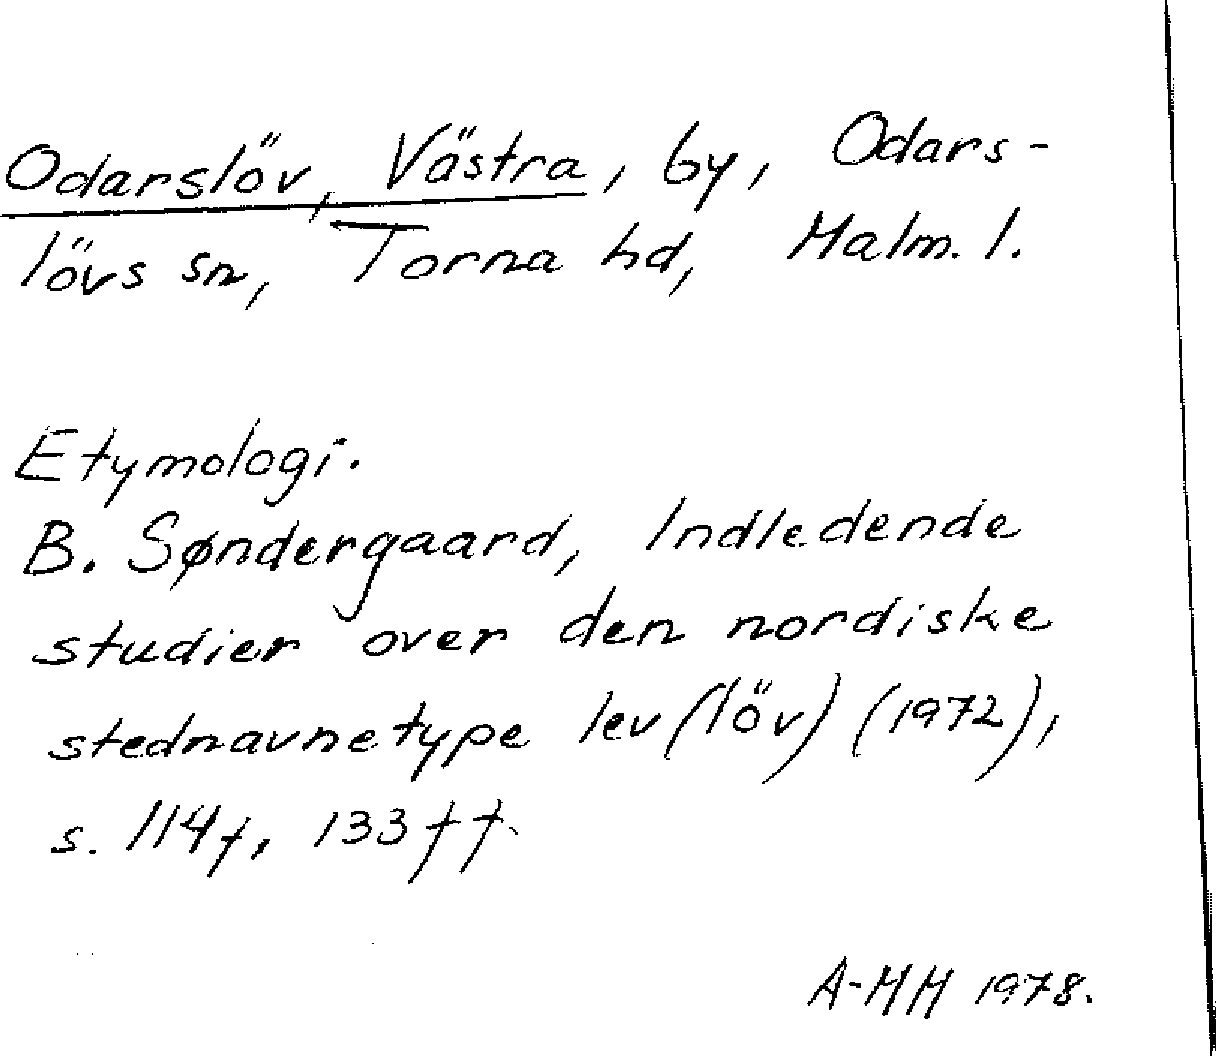 Odarslöv, Västra, by, Odars-
lövs sn, Torna hd, Malm. l.
Etymologi.
B. Søndergaard, Indledende
studier over den nordiske
stednavnetype lev (löv) (1972),
s. 114f, 133ff.
A-MM 1978.